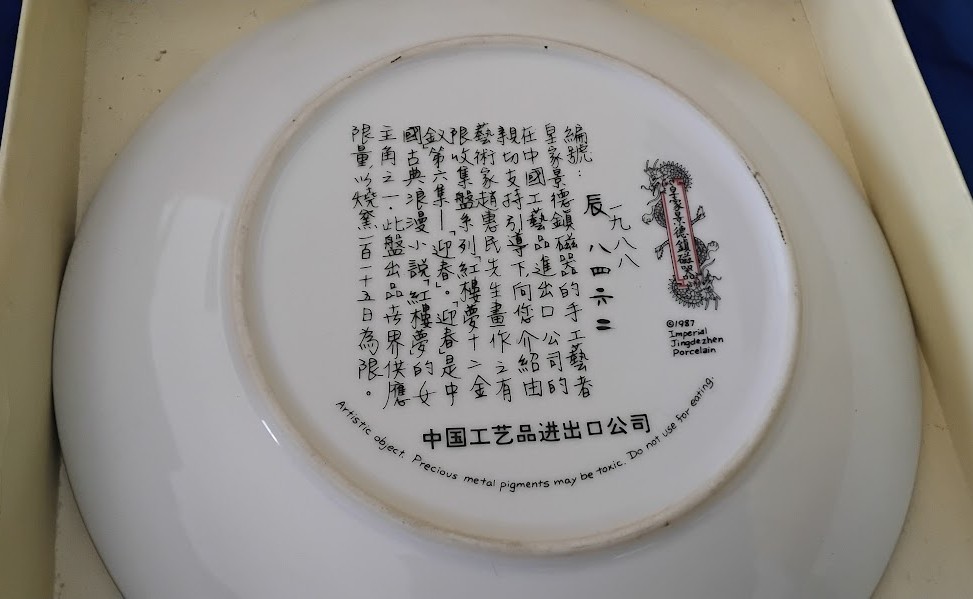 皇家景德鎮磁器
©1987
Imperial
Jingdezhen
Porcelain
一九八八
編號：辰 八四六二
皇家景德鎮磁器的手工藝者
在中國工藝品進出口公司的
親切支持引導下,向您介紹由
藝術家趙惠民先生畫作之有
限收集盤系列「紅樓夢十二金
釵」第六集—「迎春」。「迎春」是中
國古典浪漫小說「紅樓夢」的女
主角之一。此盤出品世界供應
限量,以燒窯一百一十五日為限。
中国工艺品进出口公司
Artistic object. Precious metal pigments may be toxic. Do not use for eating.